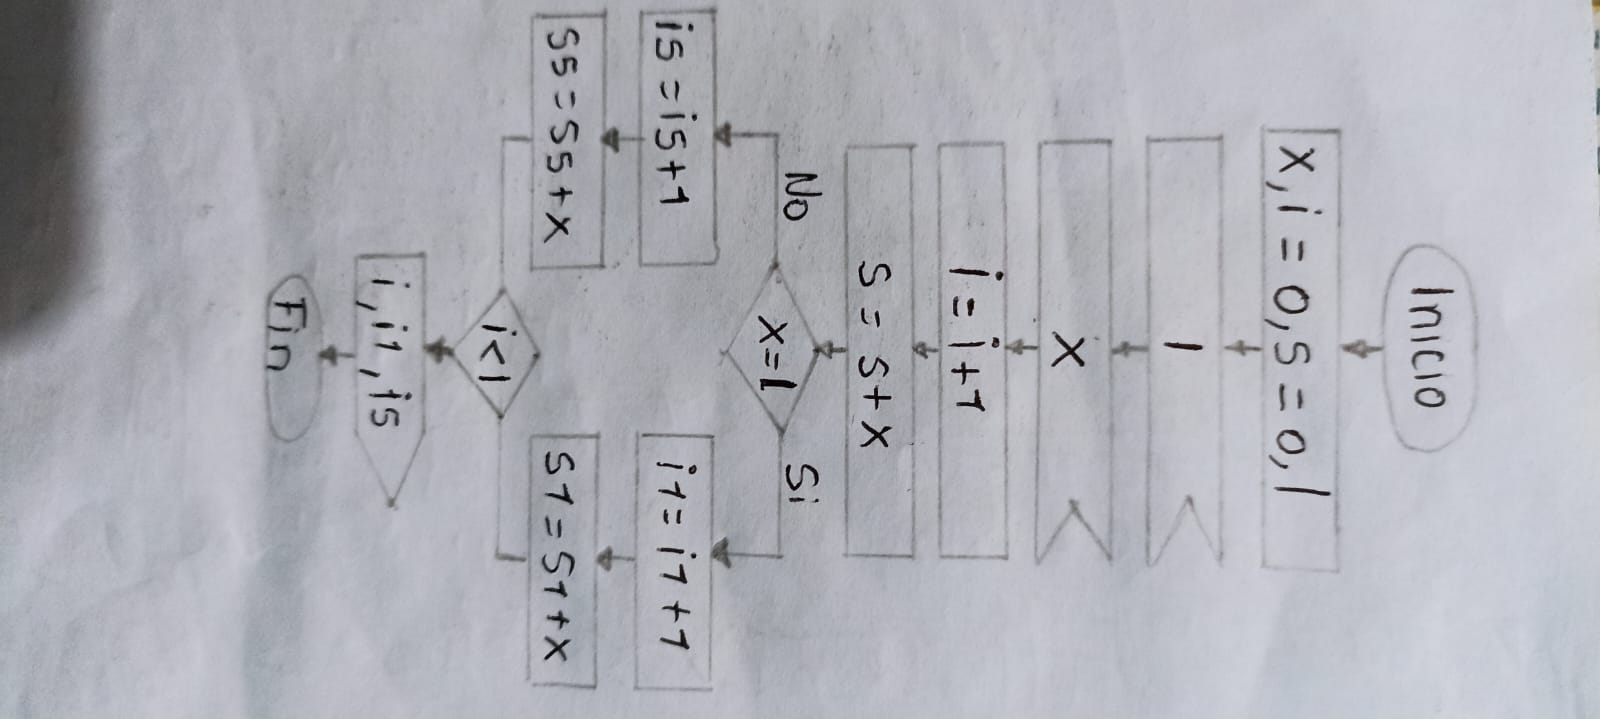 Inicio
x, i = 0, s = 0, l
l
x
i = i + 1
s = s + x
x = l
No
Si
is = is + 1
i1 = i1 + 1
ss = ss + x
s1 = s1 + x
i < l
i, i1, is
Fin